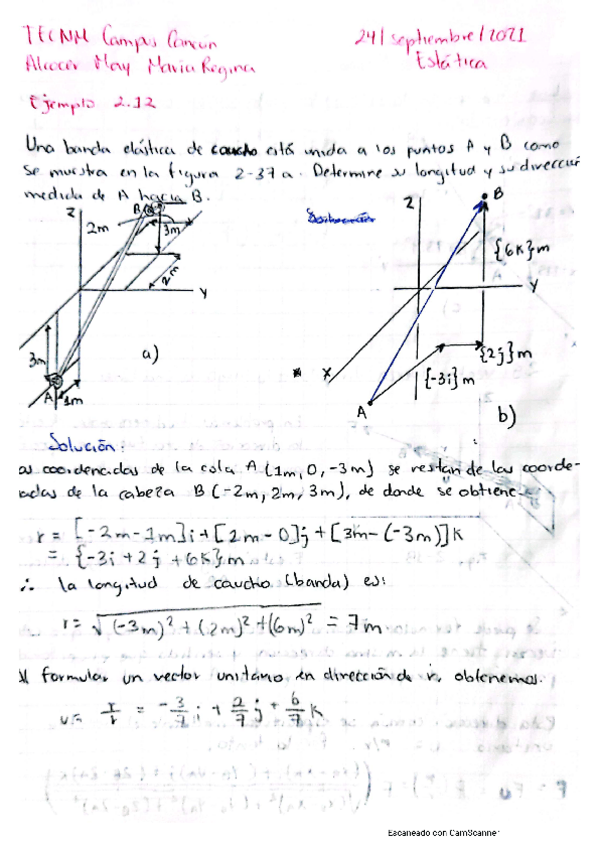 TECNM Campus Cancún
24/septiembre/2021
Alcocer May Maria Regina
Estática
Ejemplo 2.12
Una banda elástica de caucho está unida a los puntos A y B como
se muestra en la figura 2-37a. Determine su longitud y su dirección
medida de A hacia B.
Z
B
2m
3m
2m
Y
3m
A
1m
a)
Solución
Z
B
{6K}m
Y
{2j}m
X
{-3i}m
A
b)
Solución:
as coordenadas de la cola A(1m, 0, -3m) se restan de las coorde-
adas de la cabeza B(-2m, 2m, 3m), de donde se obtiene-
r = [-2m-1m]i+[2m-0]j+[3m-(-3m)]K
= {-3i +2j +6K}m
∴ la longitud de caucho (banda) es:
r= √(-3m)² + (2m)² + (6m)² = 7m
Al formular un vector unitario en dirección de r, obtenemos.
u= r/r = -3/7 i + 2/7 j + 6/7 K
Escaneado con CamScanner